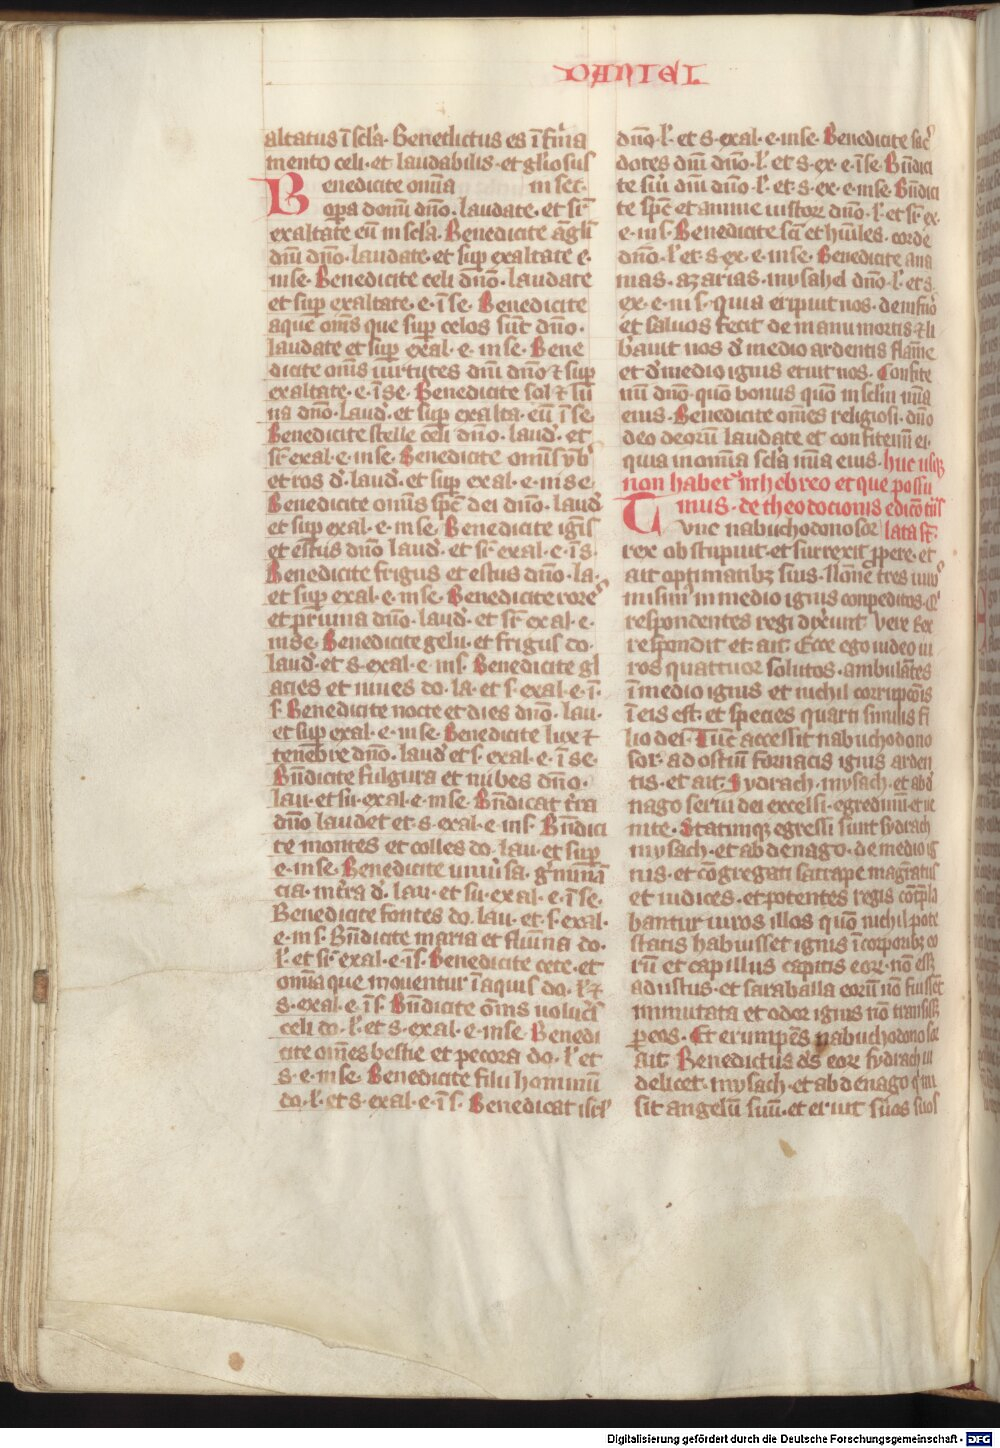 DANIEL
altatus ī scl̄a. Benedictus es ī firma
mento celi. et laudabilis. et gl̄iosus
Benedicite om̄ia in sec̄
opera domi dn̄o. laudate. et sr̄
exaltate eū in scl̄a. Benedicite āgl̄i
dn̄i dn̄o. laudate. et sup exaltate e.
in se. Benedicite celi dn̄o. laudate
et sup exaltate. e. ī se. Benedicite
aque om̄s que sup celos sūt dn̄o.
laudate et sup exal. e. in se. Bene
dicite om̄s uirtutes dn̄i dn̄o ⁊ sup
exaltate. e. ī se. Benedicite sol ⁊ lu
na dn̄o. laud. et sup exalta. eū ī se
Benedicite stelle celi dn̄o. laud. et
sr̄ exal. e. in se. Benedicite omīs ymb
et ros d. laud. et sup exal. e. in se
Benedicite omīs spc̄ dei dn̄o. laud
et sup exal. e. in se. Benedicite igīs
et estus dn̄o laud. et sr̄ exal. e. ī s.
Benedicite frigus et estus dn̄o. la.
et sup exal. e. in se. Benedicite rore
et pruina dn̄o. laud. et sr̄ exal. e.
in se. Benedicite gelu. et frigus do.
laud. et s. exal. e. in s. Benedicite gl
acies et niues do. la. et s. exal. e. ī.
s. Benedicite nocte et dies dn̄o. lau.
et sup exal. e. in se. Benedicite lux ⁊
tenebre dn̄o. laud et s. exal. e. ī se.
Bn̄dicite fulgura et nubes dn̄o.
lau. et su. exal. e. in se. Bn̄dicat t̄ra
dn̄o laudet et. s. exal. e. in s. Bn̄dici
te montes et colles do. lau. et sup
e. in se. Benedicite uniu'sa. g'minan
tia. in t̄ra d. lau. et su. exal. e. ī se.
Benedicite fontes do. lau. et. s. exal.
e. in s. Bn̄dicite maria et flumina do.
l. et sr̄ exal. e. ī s. Benedicite cete. et
om̄ia que mouentur ī aquis do. l. ⁊
s. exal. e. ī s. Bn̄dicite om̄s uolucr̄
celi do. l. et s. exal. e. in se Benedi
cite om̄es bestie et pecora do. l. et
s. e. in se. Benedicite filii hominū
do. l. et s. exal. e. ī s. Benedicat isrl̄
dn̄o. l. et s. exal. e. in se. Benedicite sac̄
dotes dn̄i dn̄o. l. et s. ex. e. ī se. Bn̄dici
te sui dn̄i dn̄o. l. et. s. ex. e. in se. Bn̄dici
te spc̄ et anime iustor dn̄o. l. et sr̄ ex.
e. in s. Benedicite sc̄i et hūiles. corde
dn̄o. l. et s. ex. e. in se. Benedicite ana
nias. azarias. mysahel dn̄o. l. et s.
ex. e. in s. quia eripuit nos. de infn̄o
et saluos fecit de manu mortis. ⁊ li
b'auit nos d' medio ardentis flam̄e
et d' medio ignis eruit nos. Confite
mī dn̄o quō bonus quō in sclm̄ mīa
eius. Benedicite om̄es religiosi. dn̄o
deo deorū laudate et confitemī ei.
quia in om̄ia scl̄a mīa eius. huc usqȝ
non habet' in hebreo et que possu
imus. de theodocionis edicōe tn̄s
Tunc nabuchodonosor lata st̄.
rex obstupuit. et surrexit ppere. et
ait optimatibȝ suis. Nōne tres uiros
misim' in medio ignis conpeditos. Q'
respondentes regi dixerunt Vere Rex
respondit et. ait. Ecce ego uideo ui
ros quattuor solutos. ambulātes
ī medio ignis et nichil corrupcōis
ī eis est. et species quarti similis fi
lio dei. Tūc accessit nabuchodono
sor. ad ostiū fornacis ignis arden
tis. et ait. Sydrach. mysach. et abd
nago serui dei excelsi. egredimī. et ue
nite. Statimqȝ egressi sunt sydrach
mysach. et abdenago. de medio ig
nis. et cōgregati satrape magr̄atus
et iudices. et potentes regis cōtēpla
bantur uiros illos quō nichil pote
statis habuisset ignis ī corporibȝ eo
rū et capillus capitis eor. nō essȝ
adustus. et saraballa eorū nō fuissēt
immutata et odor ignis nō transissȝ
p eos. Et erumpēs nabuchodonosor
ait. Benedictus ds̄ eor sydrach ui
delicet. mysach. et abdenago q' mi
sit angelū suū. et eruit s'uos suos
Digitalisierung gefördert durch die Deutsche Forschungsgemeinschaft - DFG